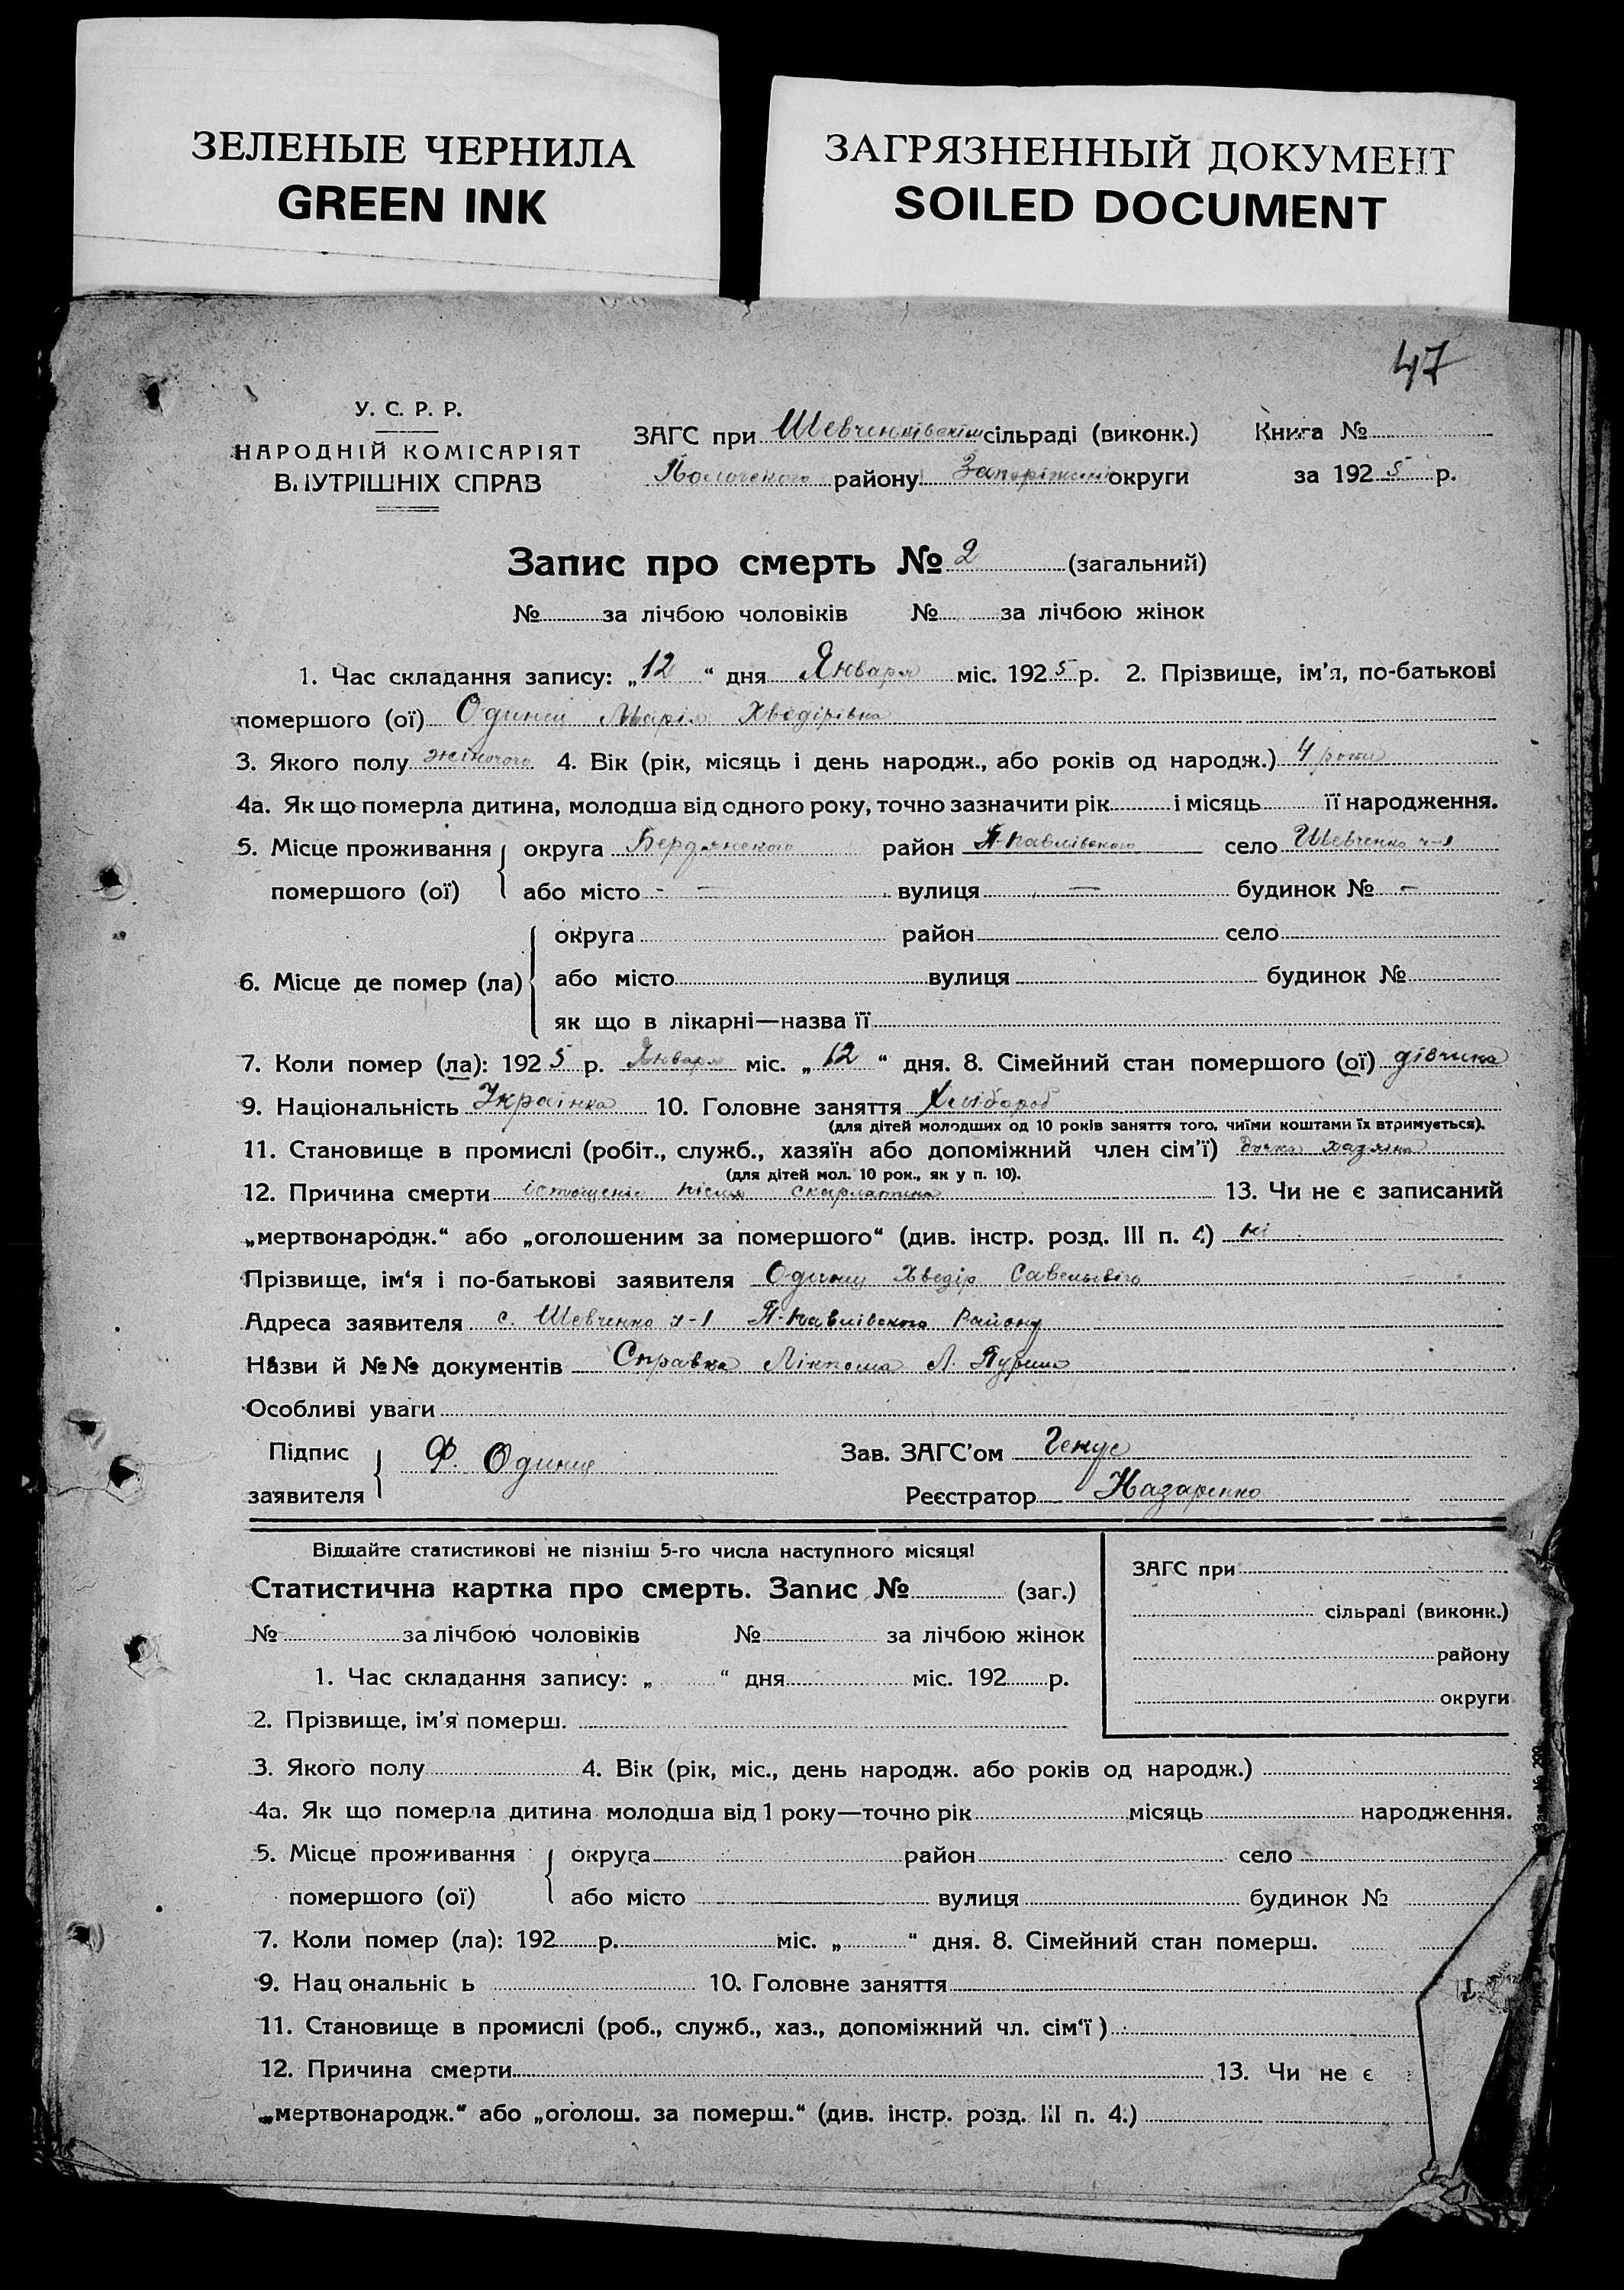 ЗЕЛЕНЫЕ ЧЕРНИЛА
GREEN INK
ЗАГРЯЗНЕННЫЙ ДОКУМЕНТ
SOILED DOCUMENT
47
У. С. Р. Р.
НАРОДНІЙ КОМІСАРІЯТ
ВНУТРІШНІХ СПРАВ
ЗАГС при Шевченківскім сільраді (виконк.)
Пологского району Запоріжскої округи
Книга №
за 1925 р.
Запис про смерть № 2 (загальний)
№ за лічбою чоловіків № за лічбою жінок
1. Час складання запису: „12“ дня Января міс. 1925 р. 2. Прізвище, ім’я, по-батькові
помершого (ої) Одинец Марія Хведірівна
3. Якого полу жіночого 4. Вік (рік, місяць і день народж., або років од народж.) 4 роки
4а. Як що померла дитина, молодша від одного року, точно зазначити рік і місяць її народження.
5. Місце проживання округа Бердянского район П-Павлівского село Шевченко ч-1
помершого (ої) або місто - — вулиця — будинок № —
округа район село
6. Місце де помер (ла) або місто вулиця будинок №
як що в лікарні—назва її
7. Коли помер (ла): 1925 р. Января міс. „12“ дня. 8. Сімейний стан помершого (ої) дівчина
9. Національність Українка 10. Головне заняття Хлібороб
(для дітей молодших од 10 років заняття того, чиїми коштами їх втримується).
11. Становище в промислі (робіт., служб., хазяїн або допоміжний член сім’ї) дочка хазяіна
(для дітей мол. 10 рок., як у п. 10).
12. Причина смерти істощеніе після скарлатина 13. Чи не є записаний
„мертвонародж.“ або „оголошеним за помершого“ (див. інстр. розд. III п. 4) ні
Прізвище, ім‘я і по-батькові заявителя Одинец Хведір Савельевіч
Адреса заявителя с. Шевченко ч-1 П-Павлівского Району
Назви й №№ документів Справка Лікпома Л.
Особливі уваги
Підпис заявителя Ф. Одинец
Зав. ЗАГС’ом
Реєстратор Назаренко
Віддайте статистикові не пізніш 5-го числа наступного місяця!
Статистична картка про смерть. Запис № (заг.)
№ за лічбою чоловіків № за лічбою жінок
ЗАГС при
сільраді (виконк.)
району
округи
1. Час складання запису: „ “ дня міс. 192 р.
2. Прізвище, ім’я померш.
3. Якого полу 4. Вік (рік, міс., день народж. або років од народж.)
4а. Як що померла дитина молодша від 1 року—точно рік місяць народження.
5. Місце проживання округа район село
помершого (ої) або місто вулиця будинок №
7. Коли помер (ла): 192 р. міс. „ “ дня. 8. Сімейний стан померш.
9. Нац ональніс ь 10. Головне заняття
11. Становище в промислі (роб., служб., хаз., допоміжний чл. сім‘ї)
12. Причина смерти 13. Чи не є
„мертвонародж.“ або „оголош. за померш.“ (див. інстр. розд. III п. 4.)